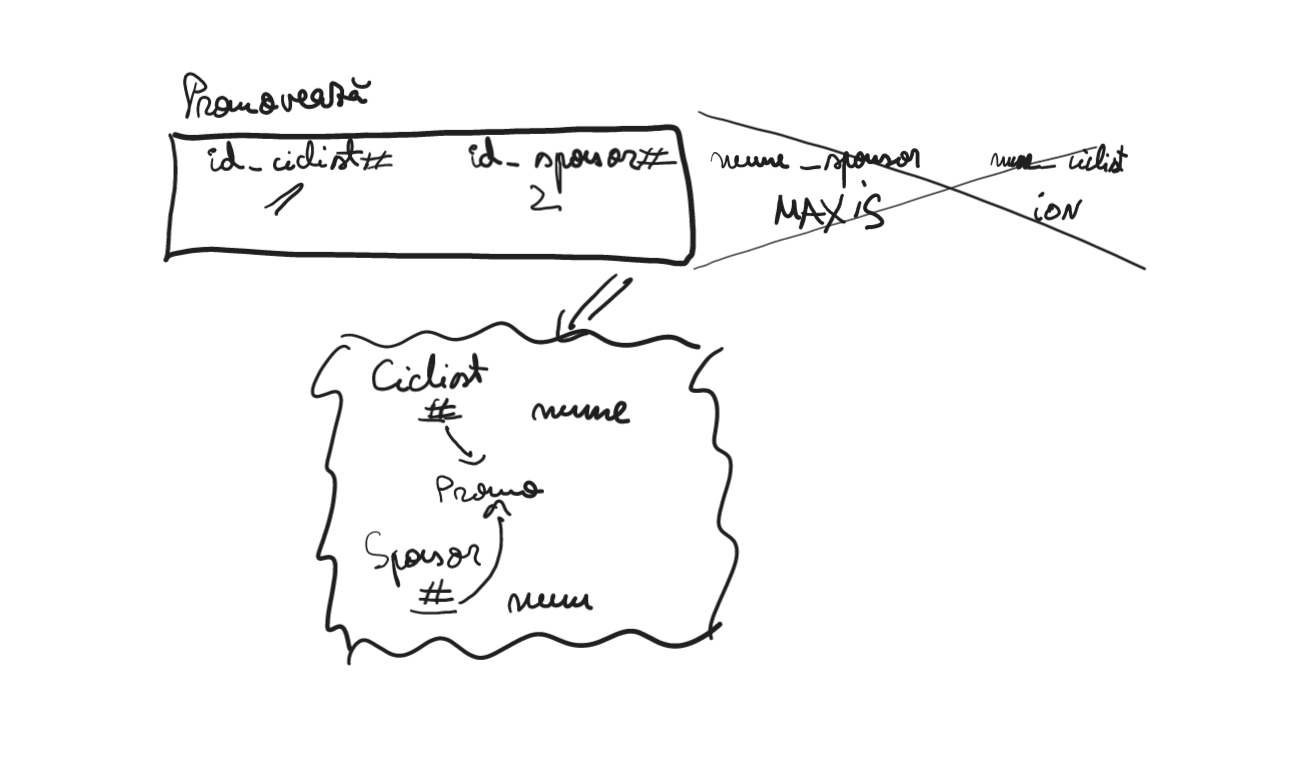 Promovează
id_ciclist# id_sponsor# nume_sponsor nume_ciclist
1 2 MAXiS iON
Ciclist
# nume
Promo
Sponsor
# nume